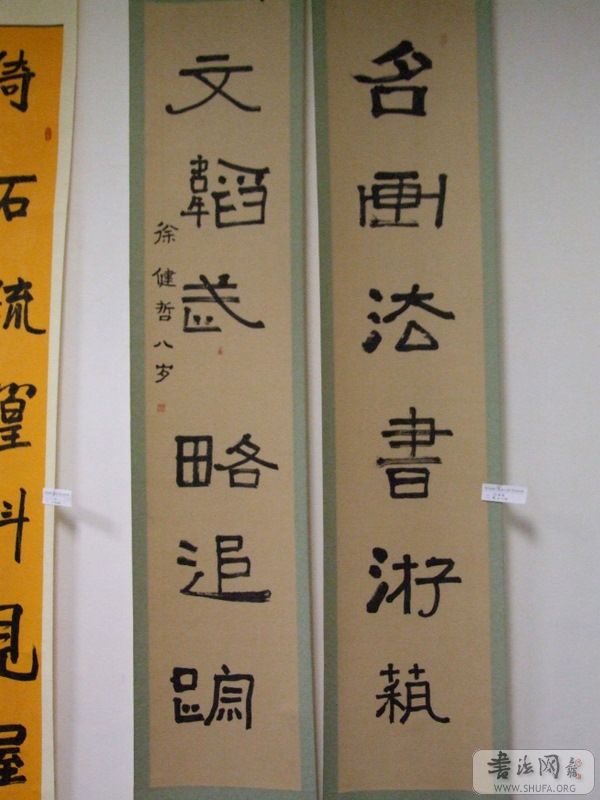 名画法書游蓺
文韜武略追踪
徐健哲八岁
倚石疏篁斜見屋
書法网
WWW.SHUFA.ORG